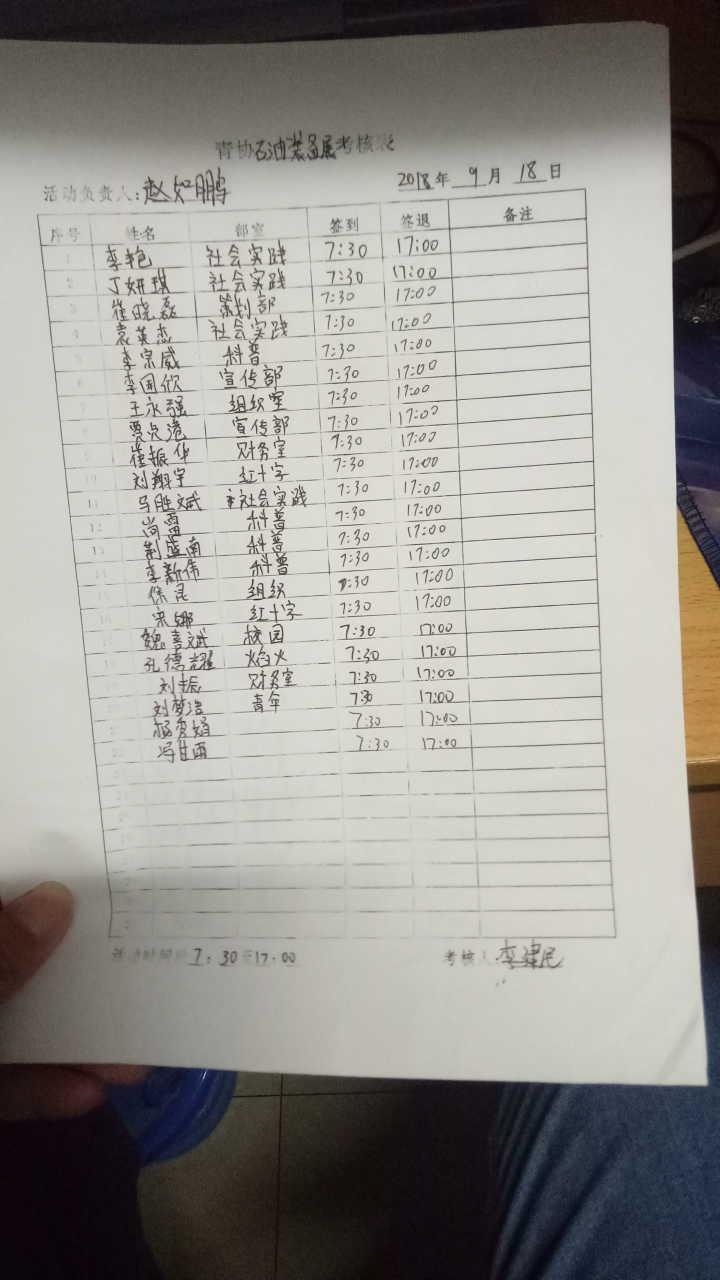 青协石油装备展考核表
活动负责人:赵如鹏 2018年 9 月 18 日
序号 姓名 部室 签到 签退 备注
1 李艳 社会实践 7:30 17:00
2 丁妍琪 社会实践 7:30 17:00
3 崔晓磊 策划部 7:30 17:00
4 袁英杰 社会实践 7:30 17:00
5 李宗威 科普 7:30 17:00
6 李国欣 宣传部 7:30 17:00
7 王永强 组织室 7:30 17:00
8 贾贞港 宣传部 7:30 17:00
9 崔振华 财务室 7:30 17:00
10 刘翔宇 红十字 7:30 17:00
11 马胜斌 社会实践 7:30 17:00
12 尚雷 科普 7:30 17:00
13 荆盛南 科普 7:30 17:00
14 李新伟 科普 7:30 17:00
15 徐昆 组织 7:30 17:00
16 宋娜 红十字 7:30 17:00
17 魏喜斌 校园 7:30 17:00
18 孔德耀 焰火 7:30 17:00
19 刘振 财务室 7:30 17:00
20 刘梦浩 青年 7:30 17:00
21 杨秀娟 7:30 17:00
22 冯甘雨 7:30 17:00
活动时间 7:30至17:00 考核人 李建民